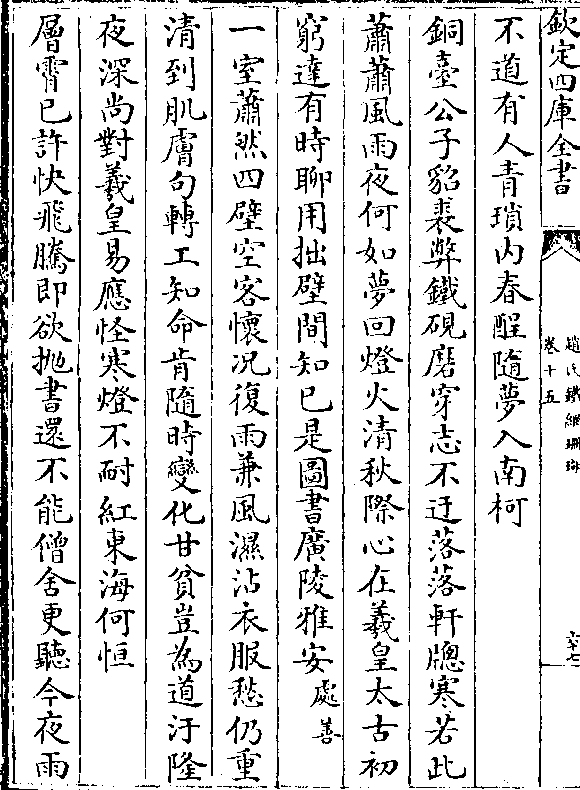 欽定四庫全書
趙氏鐵網珊瑚
卷十五
六十七
不道有人青瑣内春酲隨夢入南柯
銅臺公子貂裘弊鐵硯磨穿志不迂落落軒牕寒若此
蕭蕭風雨夜何如夢回燈火清秋際心在羲皇太古初
窮達有時聊用拙壁間知已是圖書廣陵雅安處善
一室蕭然四壁空客懷况復雨兼風濕沾衣服愁仍重
清到肌膚句轉工知命肯隨時變化甘貧豈為道汙隆
夜深尚對羲皇易應怪寒燈不耐紅東海何恒
層霄已許快飛騰即欲抛書還不能僧舍更聽今夜雨